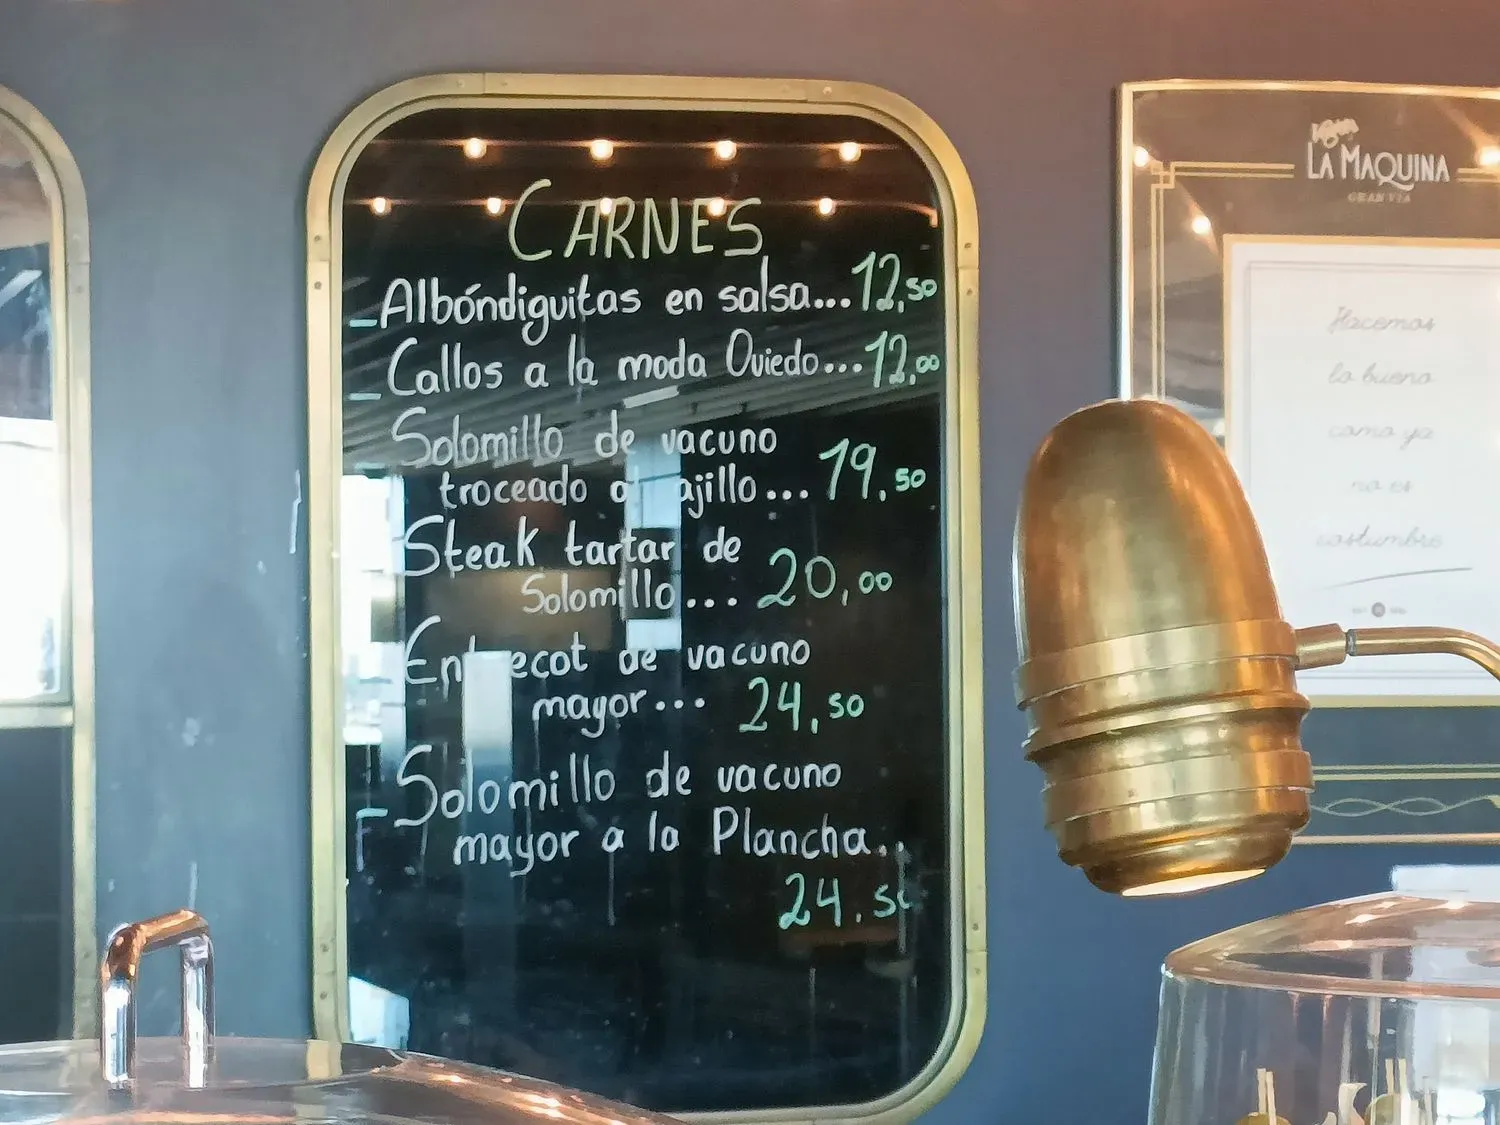 CARNES
Albóndiguitas en salsa...12,50
Callos a la moda Oviedo...12,00
Solomillo de vacuno
troceado al ajillo...19,50
Steak tartar de
Solomillo...20,00
Entrecot de vacuno
mayor...24,50
Solomillo de vacuno
mayor a la Plancha..
24.50
LA MAQUINA
GRAN VÍA
Hacemos
lo bueno
como ya
no es
costumbre